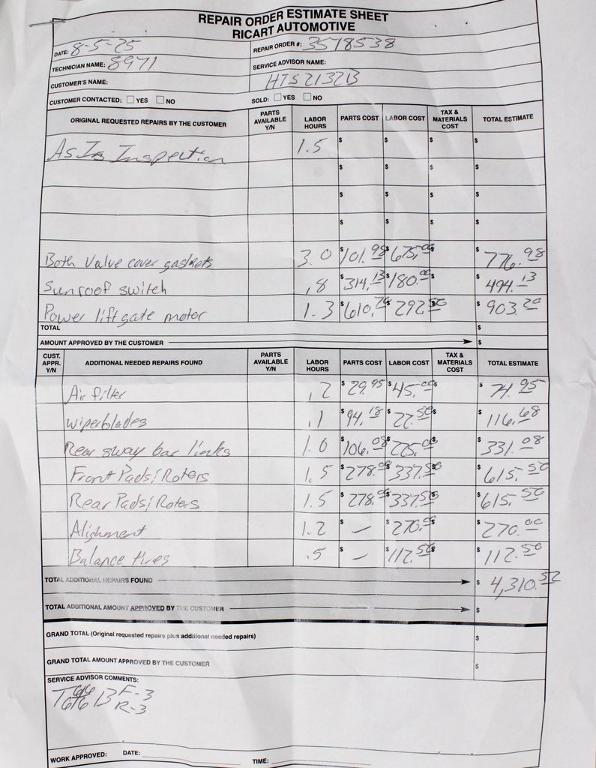 REPAIR ORDER ESTIMATE SHEET
RICART AUTOMOTIVE
DATE: 8-5-25 REPAIR ORDER #: 3518538
TECHNICIAN NAME: 8971 SERVICE ADVISOR NAME:
CUSTOMER'S NAME: HTS21321B
CUSTOMER CONTACTED: YES NO SOLD: YES NO
ORIGINAL REQUESTED REPAIRS BY THE CUSTOMER PARTS AVAILABLE Y/N LABOR HOURS PARTS COST LABOR COST TAX & MATERIALS COST TOTAL ESTIMATE
As Is Inspection 1.5 $ $ $ $
$ $ $ $
$ $ $ $
Both Valve cover gaskets 3.0 $101.98 $675.00 $776.98
Sunroof switch .8 $314.13 $180.00 $494.13
Power liftgate motor 1.3 $610.70 $292.50 $903.20
TOTAL $
AMOUNT APPROVED BY THE CUSTOMER $
CUST. APPR. Y/N ADDITIONAL NEEDED REPAIRS FOUND PARTS AVAILABLE Y/N LABOR HOURS PARTS COST LABOR COST TAX & MATERIALS COST TOTAL ESTIMATE
Air filter .2 $29.95 $45.00 $74.95
wiperblades .1 $94.18 $22.50 $116.68
Rear sway bar links 1.0 $106.08 $225.00 $331.08
Front Pads/Roters 1.5 $278.00 $337.50 $615.50
Rear Pads/Roters 1.5 $278.00 $337.50 $615.50
Alighment 1.2 $ – $270.00 $270.00
Balance tires .5 $ – $112.50 $112.50
TOTAL ADDITIONAL REPAIRS FOUND $4,310.52
TOTAL ADDITIONAL AMOUNT APPROVED BY THE CUSTOMER $
GRAND TOTAL (Original requested repairs plus additional needed repairs) $
GRAND TOTAL AMOUNT APPROVED BY THE CUSTOMER $
SERVICE ADVISOR COMMENTS:
F-3
R-3
WORK APPROVED: DATE: TIME: